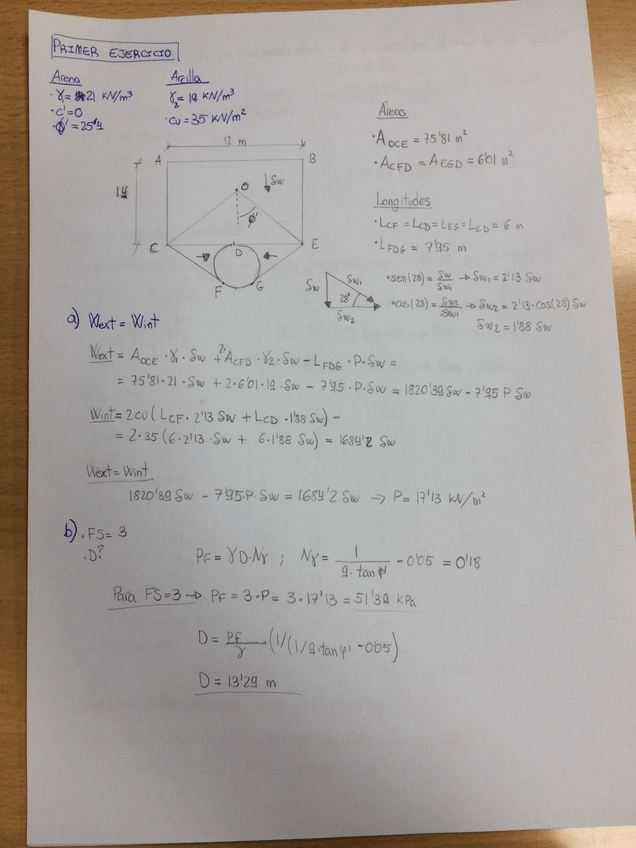 PRIMER EJERCICIO
Arena
· γ = 21 KN/m³
· c' = 0
· ϕ' = 25º
Arcilla
γ₂ = 19 KN/m³
· cu = 35 KN/m²
Áreas
· A OCE = 75'81 m²
· A CFD = A EGD = 6'01 m²
Longitudes
· L CF = L CD = L EG = L ED = 6 m
· L FDG = 7'95 m
12 m
A
B
O
δw
ϕ'
C
D
E
F
G
δw
δw₁
28º
δw₂
· sen(28) = δw/δw₁ → δw₁ = 2'13 δw
· cos(28) = δw₂/δw₁ → δw₂ = 2'13 · cos(28) δw
δw₂ = 1'88 δw
a) Wext = Wint
Wext = A OCE · γ₁ · δw + 2 · A CFD · γ₂ · δw − L FDG · P · δw =
= 75'81 · 21 · δw + 2 · 6'01 · 19 · δw − 7'95 · P · δw = 1820'39 δw − 7'95 P δw
Wint = 2 cu (L CF · 2'13 δw + L CD · 1'88 δw) =
= 2 · 35 (6 · 2'13 · δw + 6 · 1'88 δw) = 1684'2 δw
Wext = Wint
1820'39 δw − 7'95 · P · δw = 1684'2 δw → P = 17'13 KN/m²
b) · FS = 3
· D?
PF = γ D · Nγ ; Nγ = 1/(9 · tan φ') − 0'05 = 0'18
Para FS = 3 → PF = 3 · P = 3 · 17'13 = 51'39 KPa
D = PF/γ (1/(1/9 · tan φ' − 0'05)
D = 13'29 m